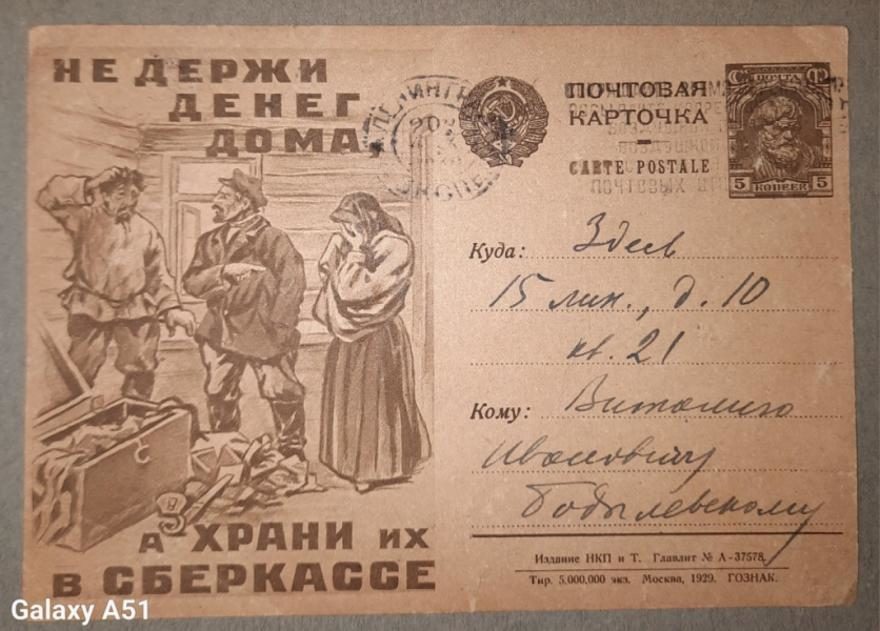 НЕ ДЕРЖИ
ДЕНЕГ
ДОМА
А ХРАНИ ИХ
В СБЕРКАССЕ
ПОЧТОВАЯ
КАРТОЧКА
CARTE POSTALE
ПОЧТОВЫХ
ПОЧТА
5 КОПЕЕК 5
Куда: Здесь
15 лин., д. 10
кв. 21
Кому: Виталию
Ивановичу
Бобылевскому
Издание НКП и Т. Главлит № А-37578.
Тир. 5.000.000 экз. Москва, 1929. ГОЗНАК.
Galaxy A51